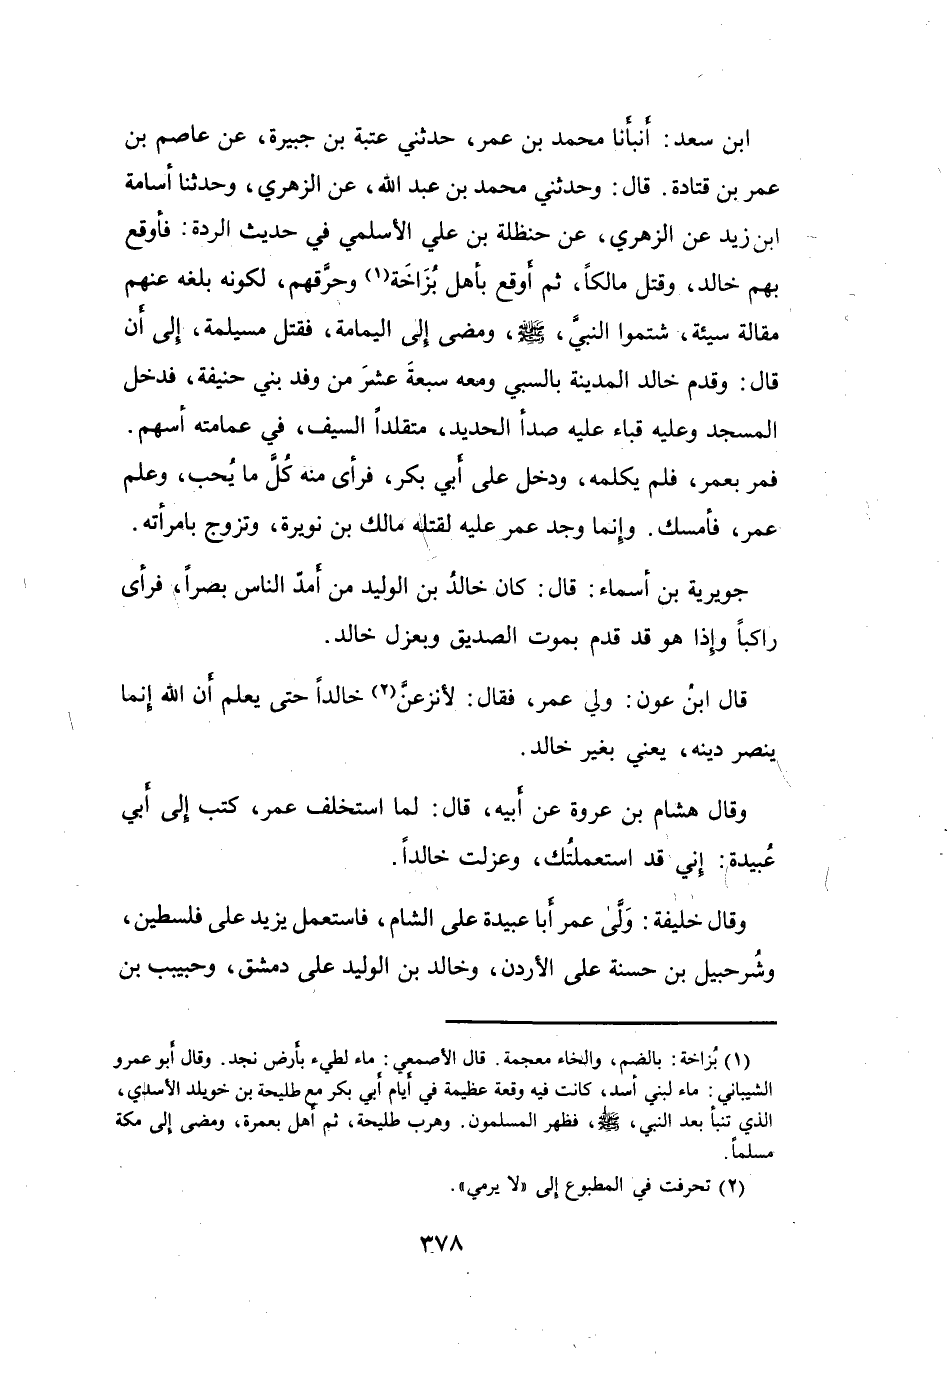 ابن سعد: أنبأنا محمد بن عمر، حدثني عتبة بن جبيرة، عن عاصم بن
عمر بن قتادة. قال: وحدثني محمد بن عبد الله، عن الزهري، وحدثنا أسامة
ابن زيد عن الزهري، عن حنظلة بن علي الأسلمي في حديث الردة: فأوقع
بهم خالد، وقتل مالكاً، ثم أوقع بأهل بُزَاخَة(١) وحرَّقهم، لكونه بلغه عنهم
مقالة سيئة، شتموا النبيَّ، ﷺ، ومضى إلى اليمامة، فقتل مسيلمة، إلى أن
قال: وقدم خالد المدينة بالسبي ومعه سبعةَ عشرَ من وفد بني حنيفة، فدخل
المسجد وعليه قباء عليه صدأ الحديد، متقلداً السيف، في عمامته أسهم.
فمر بعمر، فلم يكلمه، ودخل على أبي بكر، فرأى منه كُلَّ ما يُحب، وعلم
عمر، فأمسك. وإنما وجد عمر عليه لقتله مالك بن نويرة، وتزوج بامرأته.
جويرية بن أسماء: قال: كان خالدُ بن الوليد من أمدّ الناس بصراً، فرأى
راكباً وإذا هو قد قدم بموت الصديق وبعزل خالد.
قال ابنُ عون: ولي عمر، فقال: لأنزعنَّ(٢) خالداً حتى يعلم أن الله إنما
ينصر دينه، يعني بغير خالد.
وقال هشام بن عروة عن أبيه، قال: لما استخلف عمر، كتب إلى أبي
عُبيدة: إني قد استعملتُك، وعزلت خالداً.
وقال خليفة: وَلَّى عمر أبا عبيدة على الشام، فاستعمل يزيد على فلسطين،
وشُرحبيل بن حسنة على الأردن، وخالد بن الوليد على دمشق، وحبيب بن
(١) بُزاخة: بالضم، والخاء معجمة. قال الأصمعي: ماء لطيء بأرض نجد. وقال أبو عمرو
الشيباني: ماء لبني أسد، كانت فيه وقعة عظيمة في أيام أبي بكر مع طليحة بن خويلد الأسدي،
الذي تنبأ بعد النبي، ﷺ، فظهر المسلمون. وهرب طليحة، ثم أهل بعمرة، ومضى إلى مكة
مسلماً.
(٢) تحرفت في المطبوع إلى «لا يرمي».
٣٧٨